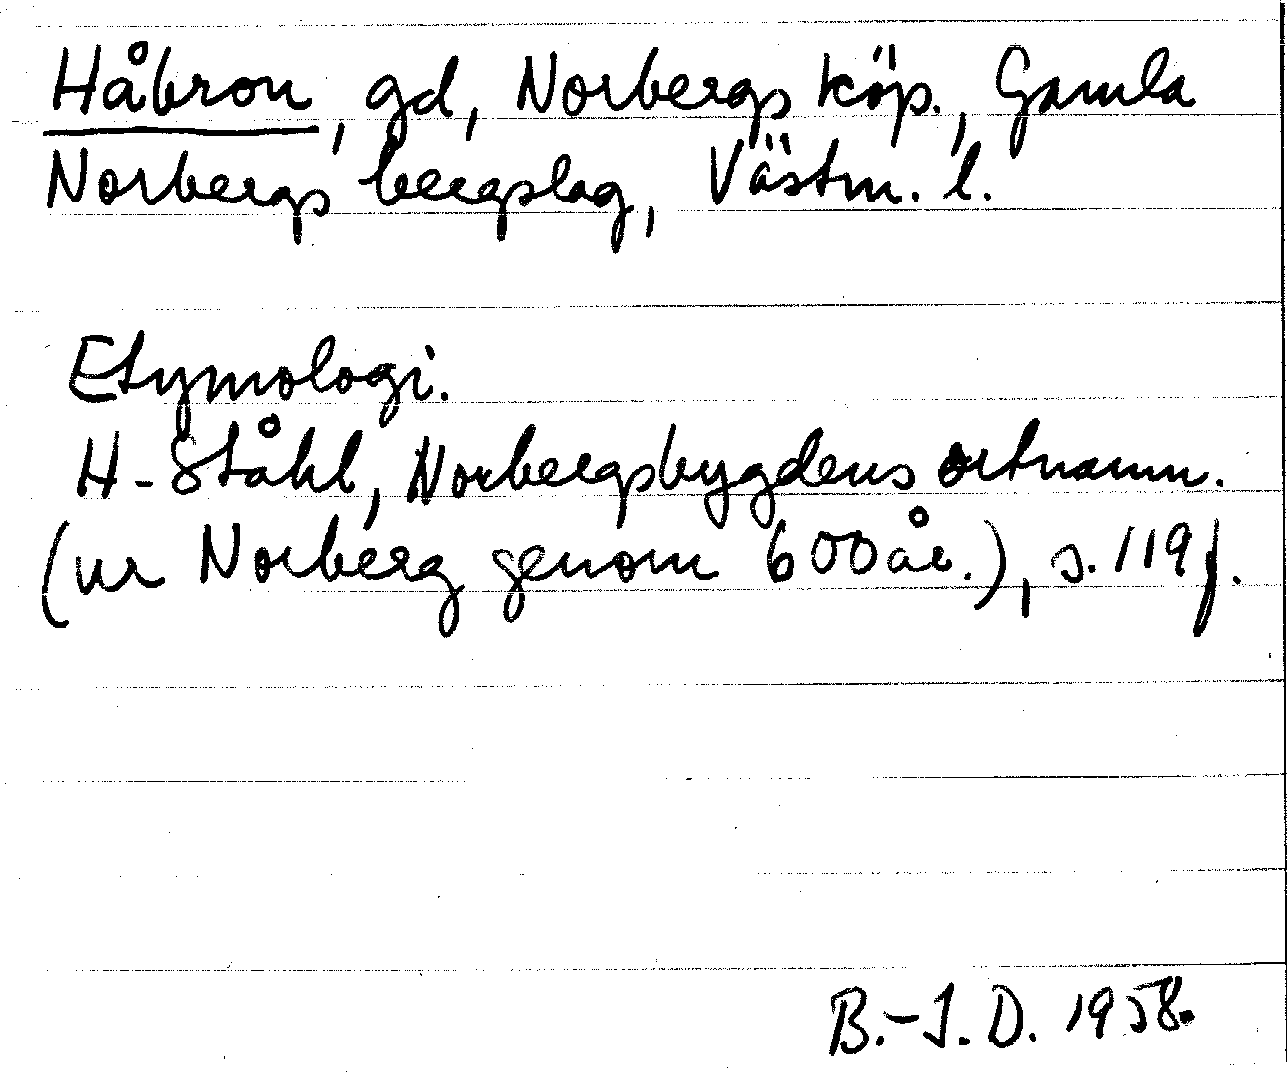 Håbron, gd, Norbergs köp., Gamla
Norbergs bergslag, Västm. l.
Etymologi.
H. Ståhl, Norbergsbygdens ortnamn.
(ur Norberg genom 600 år.), s. 119 f.
B.-I. D. 1958.